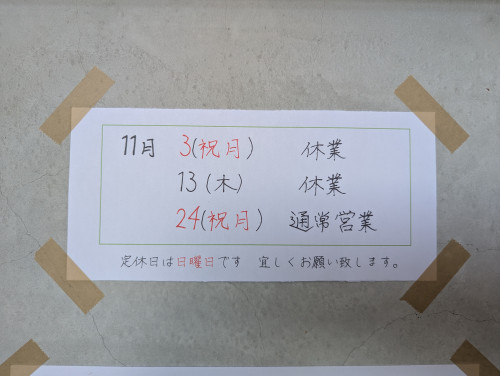 11月 3(祝月) 休業
13(木) 休業
24(祝月) 通常営業
定休日は日曜日です 宜しくお願い致します。